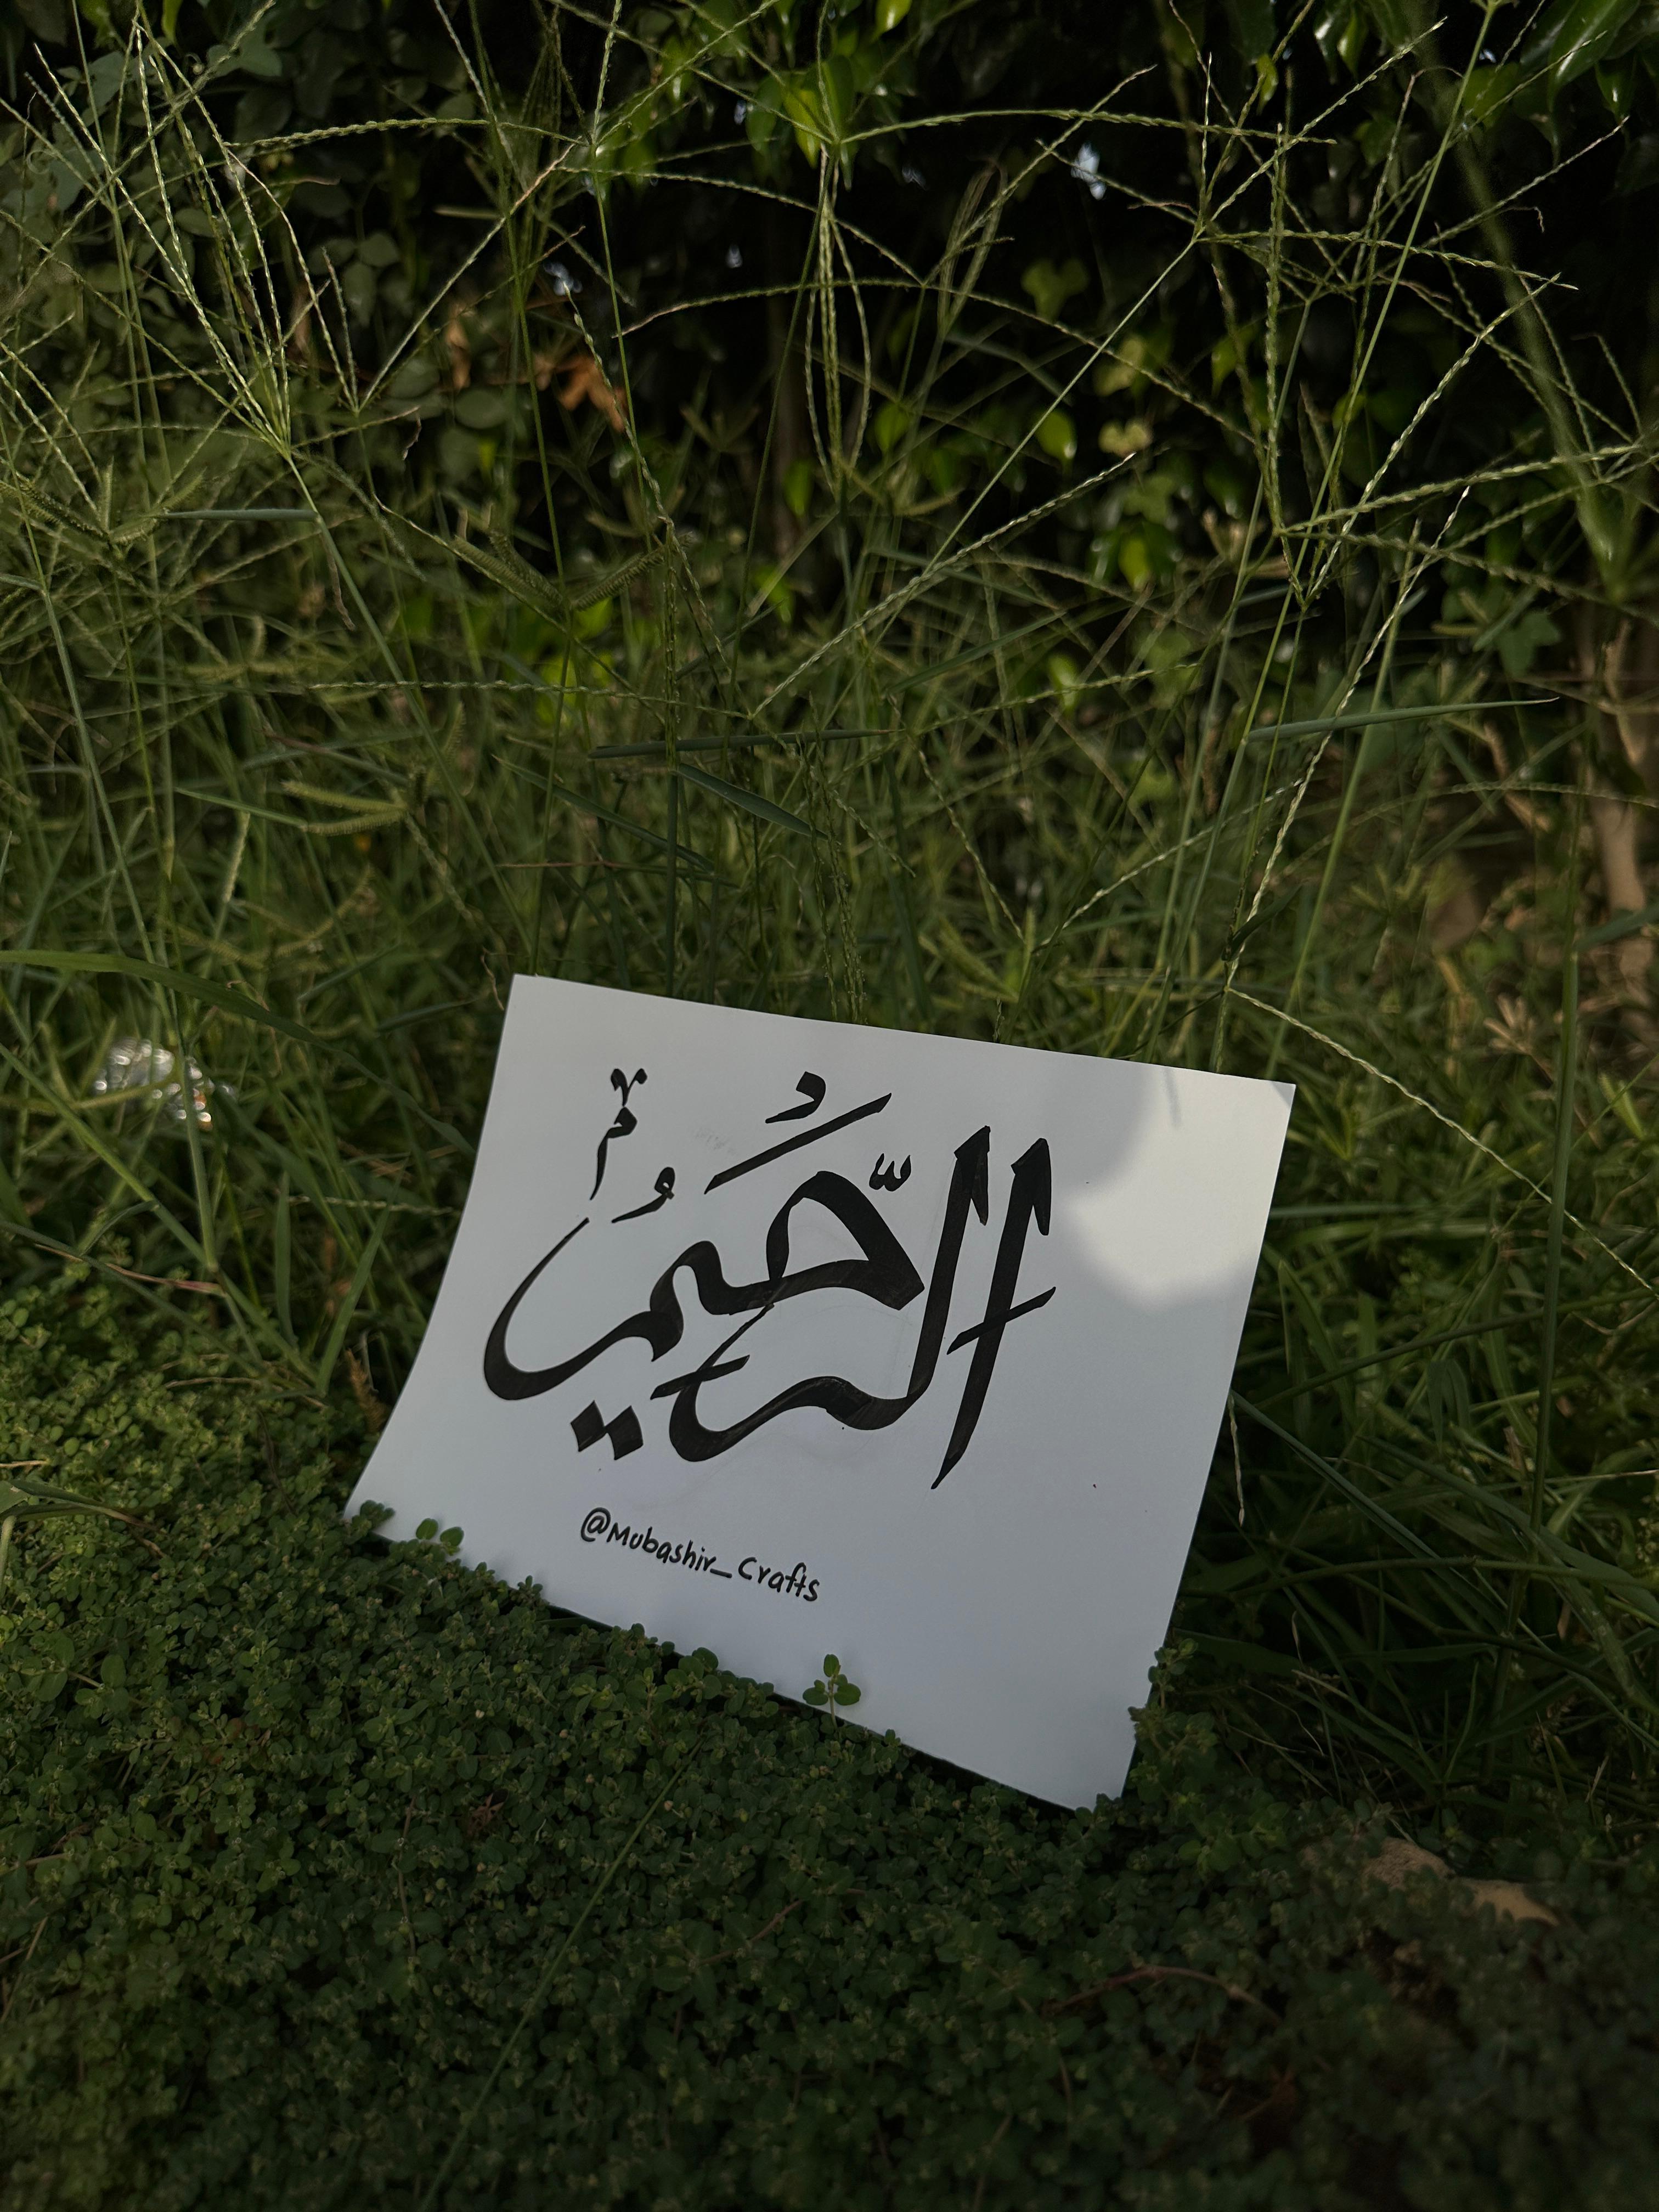 الرَّحِيمُ
@Mubashir_Crafts